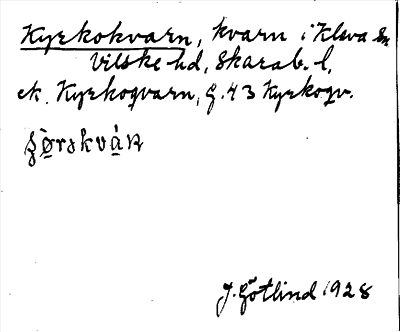 Kyrkokvarn, kvarn i Kleva sn
Vilske hd, Skarab. l,
ek. Kyrkoqvarn, g. 43 Kyrkoqv.
J. Götlind 1928